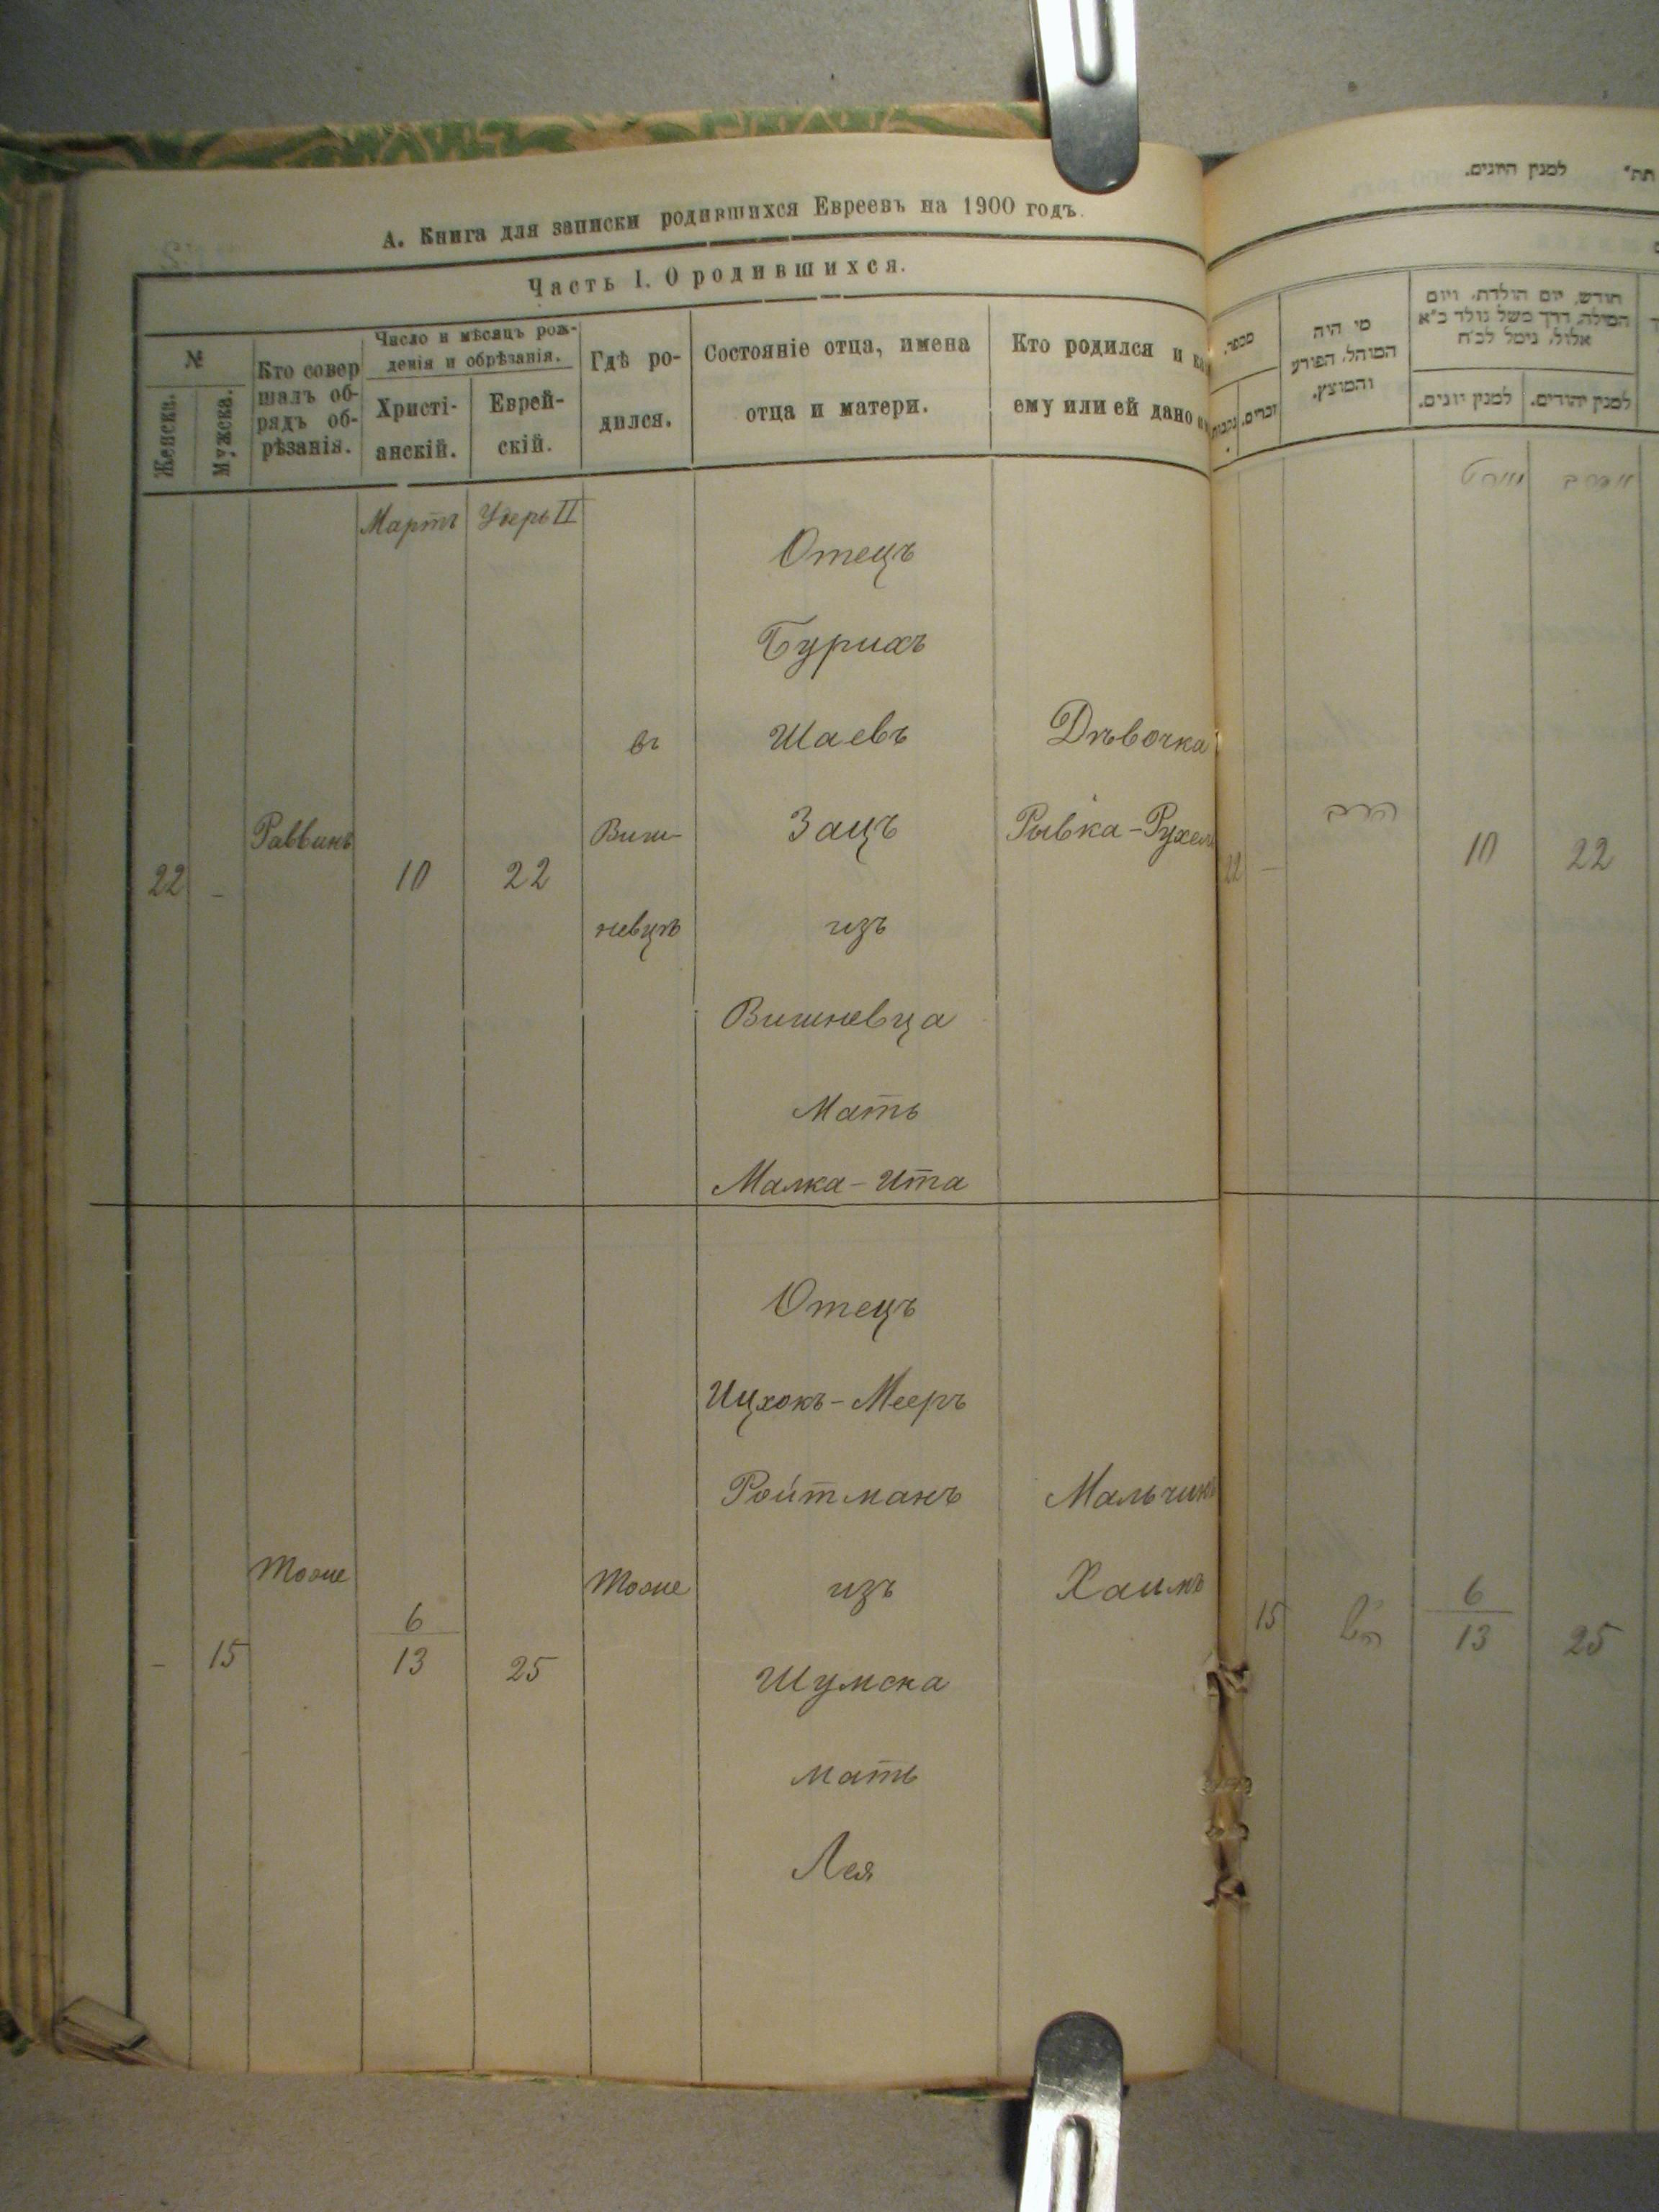 А. Книга для записки родившихся Евреевъ на 1900 годъ.
Часть I. О родившихся.
№
Женска.
Мужска.
Кто совер
шалъ об-
рядъ об-
рѣзанія.
Число и мѣсяцъ рож-
денія и обрѣзанія.
Христі-
анскій.
Еврей-
скій.
Гдѣ ро-
дился.
Состояніе отца, имена
отца и матери.
Кто родился и
ему или ей дано
Мартъ
Удеръ II
22
-
Раввинъ
10
22
въ
Виш-
невцѣ
Отецъ
Бурихъ
Шаевъ
Зацъ
изъ
Вишневца
Мать
Малка-Ита
Дѣвочка
Рывка-Рухель
-
15
Тоже
6
13
25
Тоже
Отецъ
Ицхокъ-Мееръ
Ройтманъ
изъ
Шумска
мать
Лея
Мальчикъ
Хаимъ
למנין היונים.
מספר.
נקבות
זכרים.
מי היה
המוהל, הפורע
והמוצץ.
חודש, יום הולדת, ויום
המילה, דרך משל נולד כ״א
אלול, נימל לכ״ח
למנין יונים.
למנין יהודים.
22
-
הרב
10
22
15
6
13
25